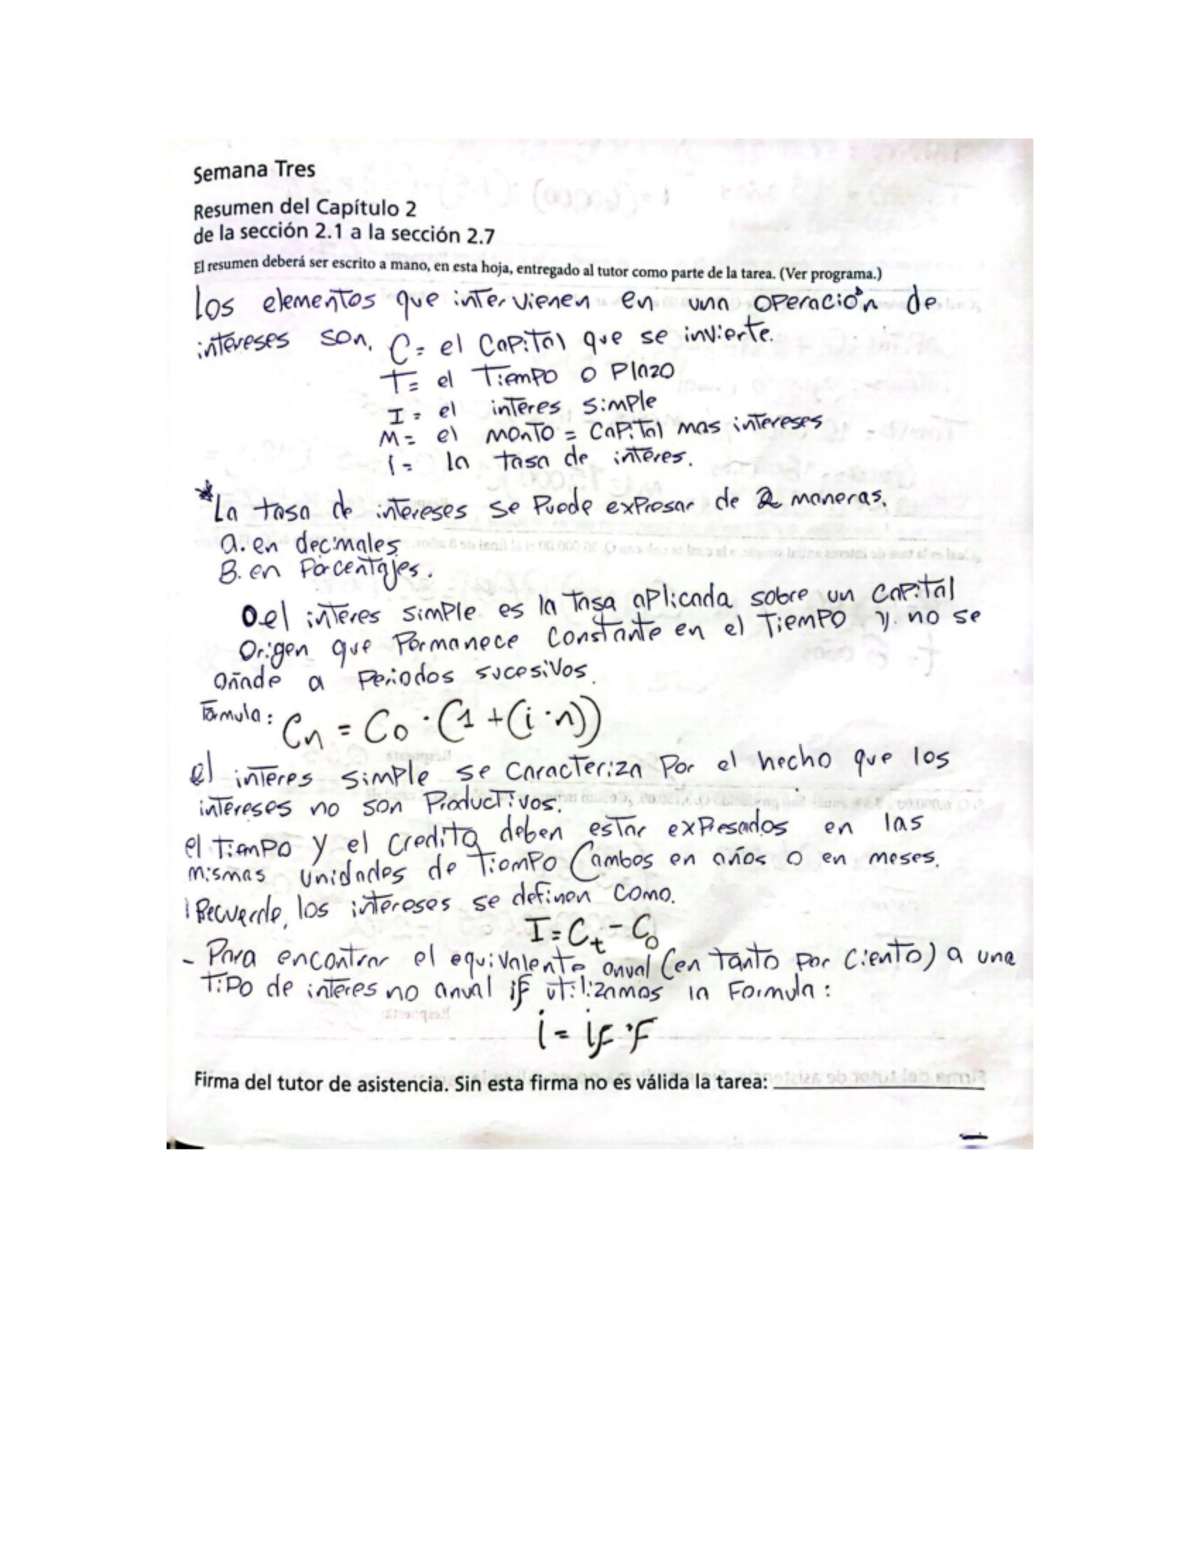 Semana Tres
Resumen del Capítulo 2
de la sección 2.1 a la sección 2.7
El resumen deberá ser escrito a mano, en esta hoja, entregado al tutor como parte de la tarea. (Ver programa.)
Los elementos que intervienen en una operación de
intereses son. C= el capital que se invierte.
T= el Tiempo o Plazo
I= el interes simple
M= el monto = capital mas intereses
i= la tasa de interes.
*La tasa de intereses se Puede expresar de 2 maneras.
a. en decimales
B. en Porcentajes.
o el interes simple es la Tasa aplicada sobre un capital
origen que Permanece constante en el Tiempo y no se
añade a Periodos sucesivos.
Formula: Cn = Co · (1 + (i · n))
el interes simple se caracteriza Por el hecho que los
intereses no son Productivos.
el Tiempo y el credito deben estar expresados en las
mismas unidades de Tiempo (ambos en años o en meses.
¡Recuerde, los intereses se definen como.
I = Ct - Co
- Para encontrar el equivalente anual (en tanto por ciento) a una
Tipo de interes no anual if utilizamos la Formula:
i = iF · F
Firma del tutor de asistencia. Sin esta firma no es válida la tarea: